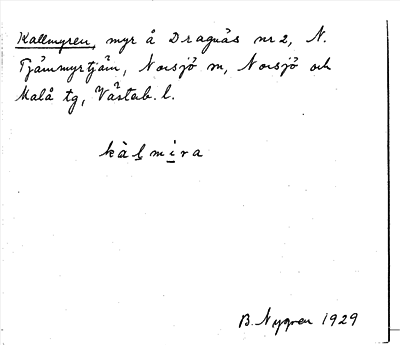 Kallmyren, myr å Dragnäs nr 2, N.
Tjåmmyrtjäm, Norsjö sn, Norsjö och
Malå tg, Västerb. l.
kàlmira
B. Nygren 1929